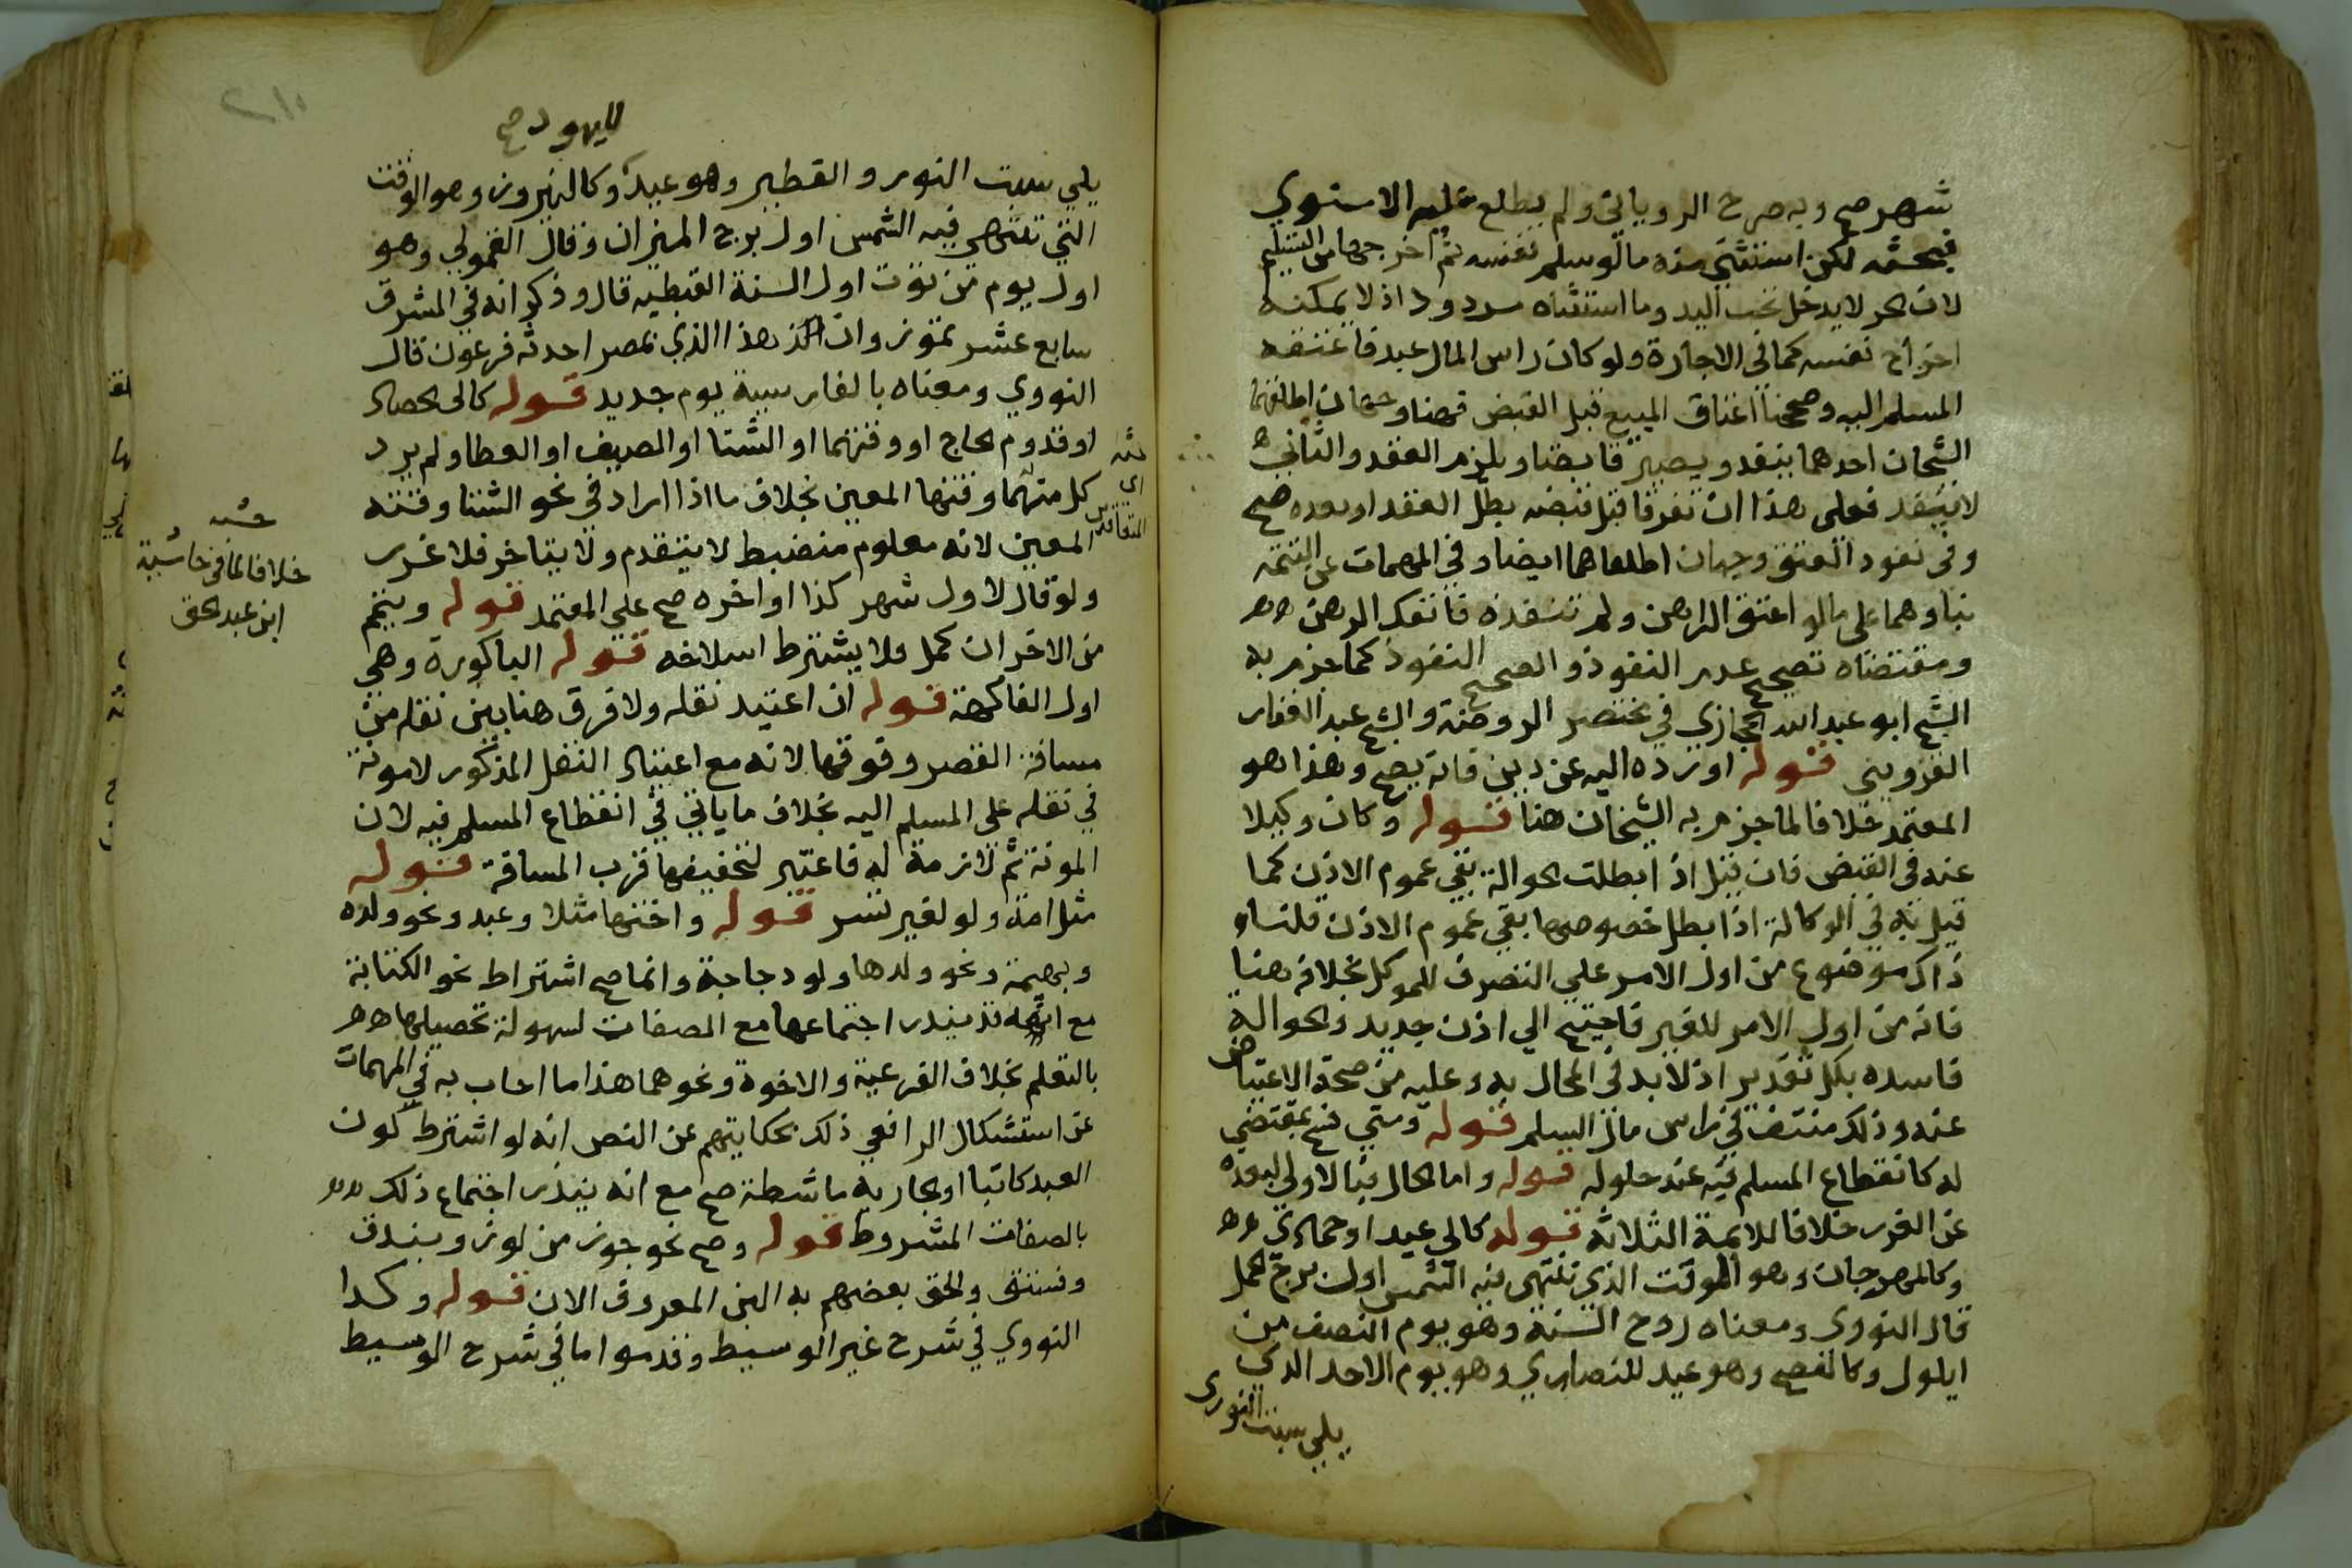 شهر صح وبه صرح الروياني ولم يطلع عليه الاسنوي
فبحثه لكن استثنى منه ما لو سلم نفسه ثم اخرجها من التسليم
لان الحر لا يدخل تحت اليد وما استثناه مردود اذ لا يمكنه
اخراج نفسه كما في الاجارة ولو كان راس المال عبد فاعتقه
المسلم اليه وصححنا اعتاق المبيع قبل القبض فهنا وجهان اطلقهما
الشيخان احدهما ينفذ ويصير قابضا ويلزم العقد والثاني
لا ينفذ فعلى هذا ان تفرقا قبل قبضه بطل العقد او بعده صح
وفى نفوذ العتق وجهان اطلقاهما ايضا وفي المهمات عن التتمة
بناوهما على ما لو اعتق الراهن ولم ننفذه فانفك الرهن
ومقتضاه تصحيح عدم النفوذ والصحيح النفوذ كما جزم به
الشيخ ابو عبد الله الحجازي في مختصر الروضة والشيخ عبد الغفار
القزويني قوله او رده اليه عن دين فانه يصح وهذا هو
المعتمد خلافا لما جزم به الشيخان هنا قوله وكان وكيلا
عنه فى القبض فان قيل اذا بطلت الحوالة بقي عموم الاذن كما
قيل به في الوكالة اذا بطل خصوصها بقي عموم الاذن قلنا
ذاك موضوع من اول الامر على التصرف للموكل بخلافه هنا
فانه من اول الامر للغير فاحتيج الي اذن جديد والحوالة
فاسده بكل تقدير اذ لا بد فى المحال به وعليه من صحة الاعتياض
عنه وذلك منتف في راس مال السلم قوله ومتي فسخ بمقتضي
له كانقطاع المسلم فيه عند حلوله قوله واما الحال فبالاولى لبعده
عن الغرر خلافا للائمة الثلاثه قوله كالي عيد او جمادي
وكالمهرجان وهو الوقت الذي تنتهى فيه الشمس اول برج الحمل
قال النووى ومعناه روح السنة وهو يوم النصف من
ايلول وكالفصح وهو عيد للنصاري وهو يوم الاحد الذي
يلي سبت النورى
لليهود صح
يلي سبت النور والفطير وهو عيد وكالنيروز وهو الوقت
التي تنتهى فيه الشمس اول برج الميزان وقال القمولي وهو
اول يوم من توت اول السنة القبطيه قال وذكر انه في المشرق
سابع عشر تموز وان هذا الذي بمصر احدثه فرعون قال
النووي ومعناه بالفارسية يوم جديد قوله كالى الحصاد
او قدوم الحاج او وقتهما او الشتا او الصيف او العطا ولم يرد
كل منهما وقتها المعين بخلاف ما اذا اراد في نحو الشتا وقته
المعين لانه معلوم منضبط لا يتقدم ولا يتاخر فلا غرر
ولو قال لاول شهر كذا او اخره صح على المعتمد قوله ويتمم
من الاخر ان كمل ولا يشترط انسلاخه قوله الباكورة وهي
اول الفاكهة قوله ان اعتيد نقله ولا فرق هنا بين نقله من
مسافة القصر وفوقها لانه مع اعتياد النقل المذكور لا مونة
في نقله على المسلم اليه بخلاف ما ياتي في انقطاع المسلم فيه لان
المونة ثم لازمة له فاعتبر لتخفيفها قرب المسافة قوله
مثل امة ولو لغير تسر قوله واختها مثلا وعبد ونحو ولده
وبهيمة ونحو ولدها ولو دجاجة وانما صح اشتراط نحو الكتابة
مع انه يندر اجتماعها مع الصفات لسهولة تحصيلها
بالتعلم بخلاف الفرعية والاخوة ونحوهما هذا ما اجاب به في المهمات
عن استشكال الرافعي ذلك بحكايتهم عن النص انه لو اشترط كون
العبد كاتبا او الجارية ماشطة صح مع انه يندر اجتماع ذلك
بالصفات المشروط قوله وصح نحو جوز من لوز وبندق
وفستق والحق بعضهم به البن المعروف الان قوله وكذا
النووي في شرح غير الوسيط وقدموا ما في شرح الوسيط
حشه
خلافا لما في حاشية
ابن عبد الحق
اي
العاقدين